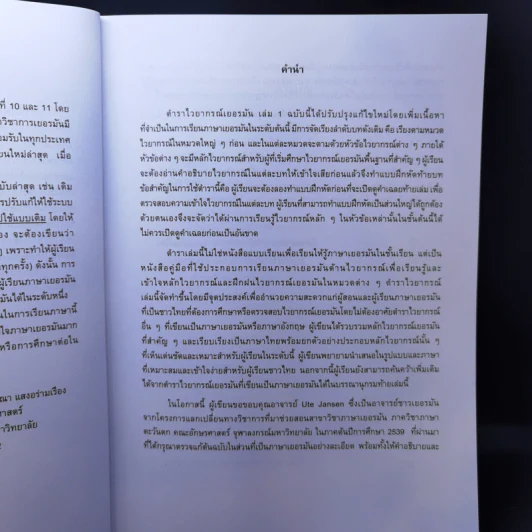 ที่ 10 และ 11 โดย
วิชาการเยอรมันมี
อมรับในทุกประเทศ
ยนใหม่ล่าสุด เมื่อ
บับล่าสุด เช่น เดิม
รปรับแก้ให้ใช้ระบบ
ปใช้แบบเดิม โดยให้
อง จะต้องเขียนว่า
ๆ เพราะทำให้ผู้เรียน
ทุกครั้ง) ดังนั้น การ
ผู้เรียนภาษาเยอรมัน
มันได้ในระดับหนึ่ง
นในการเรียนภาษานี้
ใจภาษาเยอรมันมาก
หรือการศึกษาต่อใน
ณา แสงอร่ามเรือง
ศาสตร์
าวิทยาลัย
คำนำ
ตำราไวยากรณ์เยอรมัน เล่ม 1 ฉบับนี้ได้ปรับปรุงแก้ไขใหม่โดยเพิ่มเนื้อหา
ที่จำเป็นในการเรียนภาษาเยอรมันในระดับต้นนี้ มีการจัดเรียงลำดับบทดังเดิม คือ เรียงตามหมวด
ไวยากรณ์ในหมวดใหญ่ ๆ ก่อน และในแต่ละหมวดจะตามด้วยหัวข้อไวยากรณ์ต่าง ๆ ภายใต้
หัวข้อต่าง ๆ จะมีหลักไวยากรณ์สำหรับผู้ที่เริ่มศึกษาไวยากรณ์เยอรมันพื้นฐานที่สำคัญ ๆ ผู้เรียน
จะต้องอ่านคำอธิบายไวยากรณ์ในแต่ละบทให้เข้าใจเสียก่อนแล้วจึงทำแบบฝึกหัดท้ายบท
ข้อสำคัญในการใช้ตำรานี้คือ ผู้เรียนจะต้องลองทำแบบฝึกหัดก่อนที่จะเปิดดูคำเฉลยท้ายเล่ม เพื่อ
ทดสอบความเข้าใจไวยากรณ์ในแต่ละบท ผู้เรียนที่สามารถทำแบบฝึกหัดเป็นส่วนใหญ่ได้ถูกต้อง
ด้วยตนเองจึงจะจัดว่าได้ผ่านการเรียนรู้ไวยากรณ์หลัก ๆ ในหัวข้อเหล่านั้นในชั้นต้นนี้ได้
ไม่ควรเปิดดูคำเฉลยก่อนเป็นอันขาด
ตำราเล่มนี้ไม่ใช่หนังสือแบบเรียนเพื่อเรียนให้รู้ภาษาเยอรมันในชั้นเรียน แต่เป็น
หนังสือคู่มือที่ใช้ประกอบการเรียนภาษาเยอรมันด้านไวยากรณ์เพื่อเรียนรู้และ
เข้าใจหลักไวยากรณ์และฝึกฝนไวยากรณ์เยอรมันในหมวดต่าง ๆ ตำราไวยากรณ์
เล่มนี้จัดทำขึ้นโดยมีจุดประสงค์เพื่ออำนวยความสะดวกแก่ผู้สอนและผู้เรียนภาษาเยอรมัน
ที่เป็นชาวไทยที่ต้องการศึกษาหรือตรวจสอบไวยากรณ์เยอรมันโดยไม่ต้องอาศัยตำราไวยากรณ์
อื่น ๆ ที่เขียนเป็นภาษาเยอรมันหรือภาษาอังกฤษ ผู้เขียนได้รวบรวมหลักไวยากรณ์เยอรมัน
ที่สำคัญ ๆ และเรียบเรียงเป็นภาษาไทยพร้อมยกตัวอย่างประกอบหลักไวยากรณ์นั้น ๆ
ที่เห็นเด่นชัดและเหมาะสำหรับผู้เรียนในระดับนี้ ผู้เขียนพยายามนำเสนอในรูปแบบและภาษา
ที่เหมาะสมและเข้าใจง่ายสำหรับผู้เรียนชาวไทย นอกจากนี้ผู้เรียนยังสามารถค้นคว้าเพิ่มเติม
ได้จากตำราไวยากรณ์เยอรมันที่เขียนเป็นภาษาเยอรมันได้ในบรรณานุกรมท้ายเล่มนี้
ในโอกาสนี้ ผู้เขียนขอขอบคุณอาจารย์ Ute Jansen ซึ่งเป็นอาจารย์ชาวเยอรมัน
จากโครงการแลกเปลี่ยนทางวิชาการที่มาช่วยสอนสาขาวิชาภาษาเยอรมัน ภาควิชาภาษา
ตะวันตก คณะอักษรศาสตร์ จุฬาลงกรณ์มหาวิทยาลัย ในภาคต้นปีการศึกษา 2539 ที่ผ่านมา
ที่ได้กรุณาตรวจแก้ต้นฉบับในส่วนที่เป็นภาษาเยอรมันอย่างละเอียด พร้อมทั้งให้คำอธิบายและ